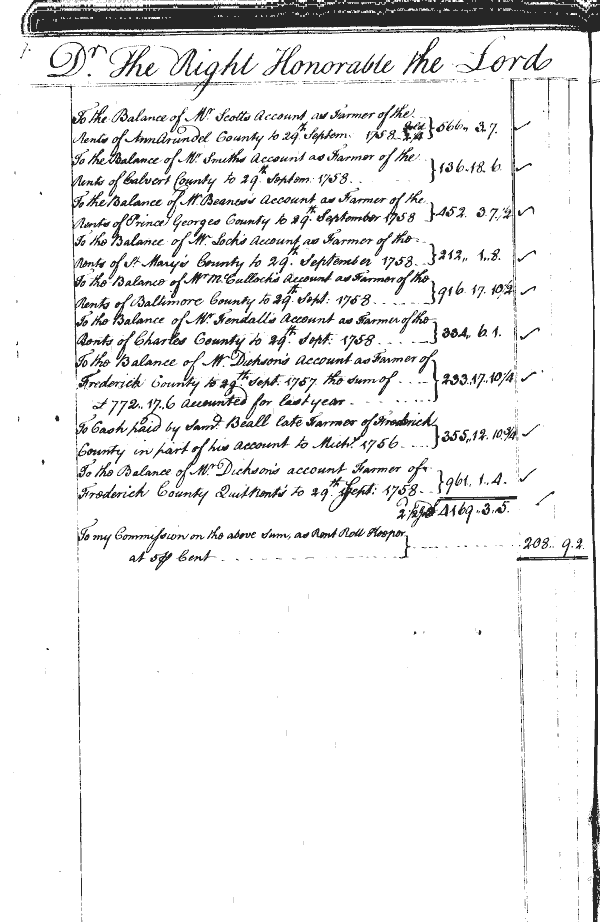 Dr. The Right Honorable the Lord
To the Balance of Mr. Scotts Account as Farmer of the
Rents of AnnArundel County to 29th Septem. 1758 } 566.. 3.7.
To the Balance of Mr. Smiths Account as Farmer of the
Rents of Calvert County to 29th Septem. 1758 } 136.18.6.
To the Balance of Mr. Beanes's Account as Farmer of the
Rents of Prince Georges County to 29th September 1758 } 452. 3.7/2
To the Balance of Mr. Lock's Account as Farmer of the
Rents of St. Mary's County to 29th September 1758 } 212.. 1..8.
To the Balance of Mr. McCulloch's Account as Farmer of the
Rents of Baltimore County to 29th Sept. 1758 } 916.17.10/2
To the Balance of Mr. Hendall's Account as Farmer of the
Rents of Charles County to 29th Sept. 1758 } 334.. 6.1.
To the Balance of Mr. Dickson's Account as Farmer of
Frederick County to 29th Sept. 1757 the sum of } 233.17..10/4
£772..17..6 Accounted for last year
To Cash paid by Saml. Beall late Farmer of Frederick
County in part of his Account to Michs. 1756 } 355,12.10 3/4
To the Balance of Mr. Dickson's account Farmer of
Frederick County Quit Rents to 29th Sept: 1758 } 961..1..4.
4169..3..5.
To my Commission on the above Sum, as Rent Roll Keeper
at 5 P Cent } 208.. 9.2